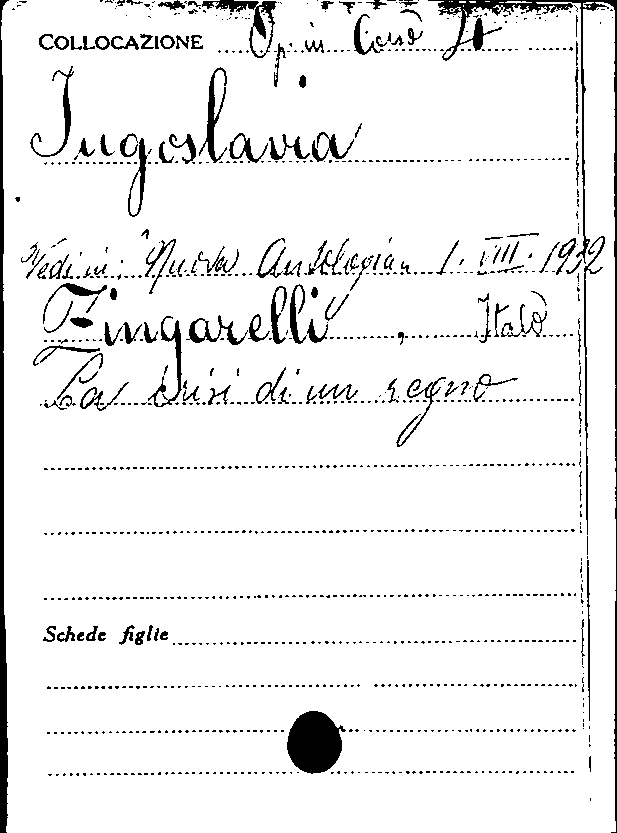 COLLOCAZIONE Op. in Corso
Jugoslavia
Vedi in: "Nuova Antologia" 1. VIII. 1932
Zingarelli, Italo
La crisi di un regno
Schede figlie